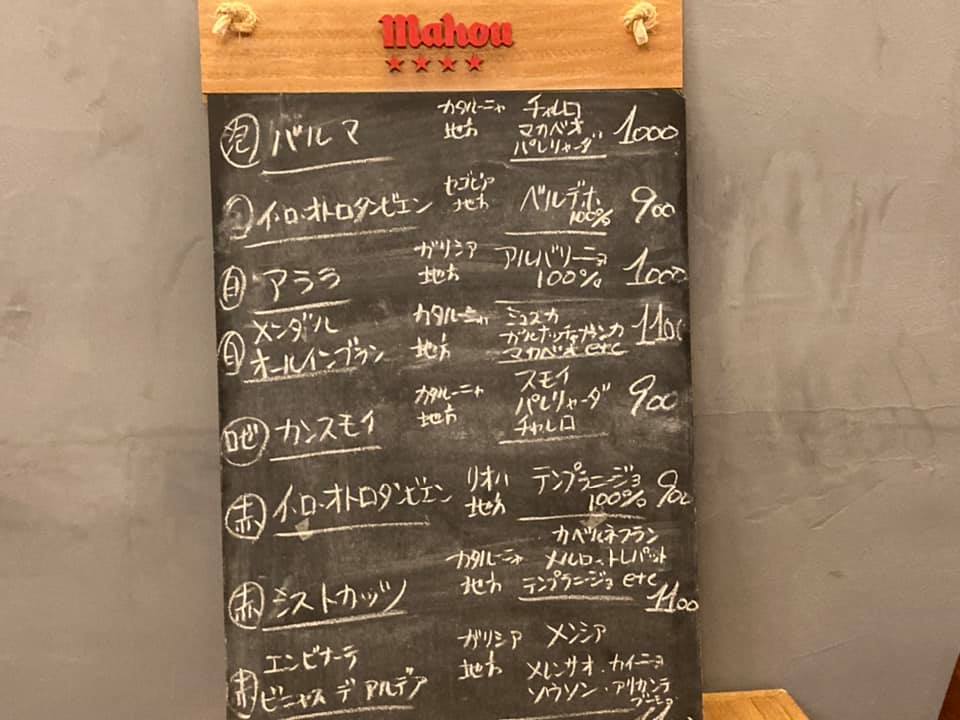 mahou
泡 バルマ カタルーニャ地方 チャレロ マカベオ パレリャーダ 1000
イ・ロ・オトロタンビエン セゴビア地方 ベルデホ 100% 900
白 アララ ガリシア地方 アルバリーニョ 100% 1000
白 メンダル オールインブラン カタルーニャ地方 ミュスカ ガルナッチャブランカ マカベオ etc 1100
ロゼ カンスモイ カタルーニャ地方 スモイ パレリャーダ チャレロ 900
赤 イ・ロ・オトロタンビエン リオハ地方 テンプラニージョ 100% 900
赤 シストカッツ カタルーニャ地方 カベルネフラン メルロー・トレパット テンプラニージョ etc 1100
赤 エンビナーテ ビニャス デ アルデア ガリシア地方 メンシア メレンサオ・カイーニョ ソウソン・アリカンテ